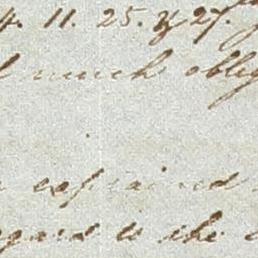 4. 11. 25. & 27.
much oblig
explained
gard to the